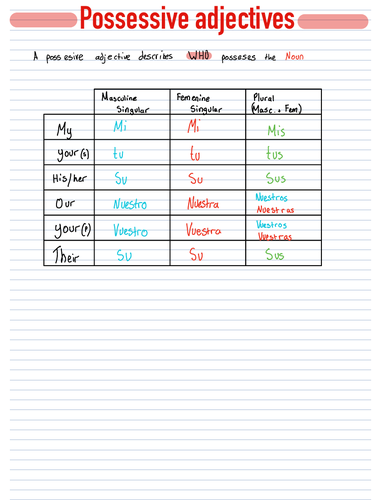 Possessive adjectives
A possesive adjective describes WHO posseses the Noun
Masculine Singular Femenine Singular Plural (Masc. + Fem)
My Mi Mi Mis
your(s) tu tu tus
His/her Su Su Sus
Our Nuestro Nuestra Nuestros Nuestras
your(P) Vuestro Vuestra Vuestros Vuestras
Their Su Su Sus